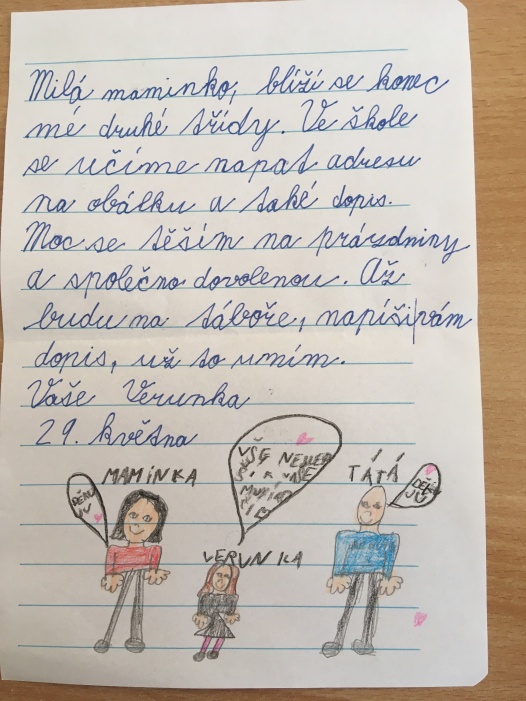 Milá maminko, blíží se konec
mé druhé třídy. Ve škole
se učíme napat adresu
na obálku a také dopis.
Moc se těším na prázdniny
a společno dovolenou. Až
budu na táboře, napíši vám
dopis, už to umím.
Vaše Verunka
29. května
MAMINKA
VŠE NEJLEP
TÁTÁ
DĚKU
JU
DĚKU
JU
VERUNKA